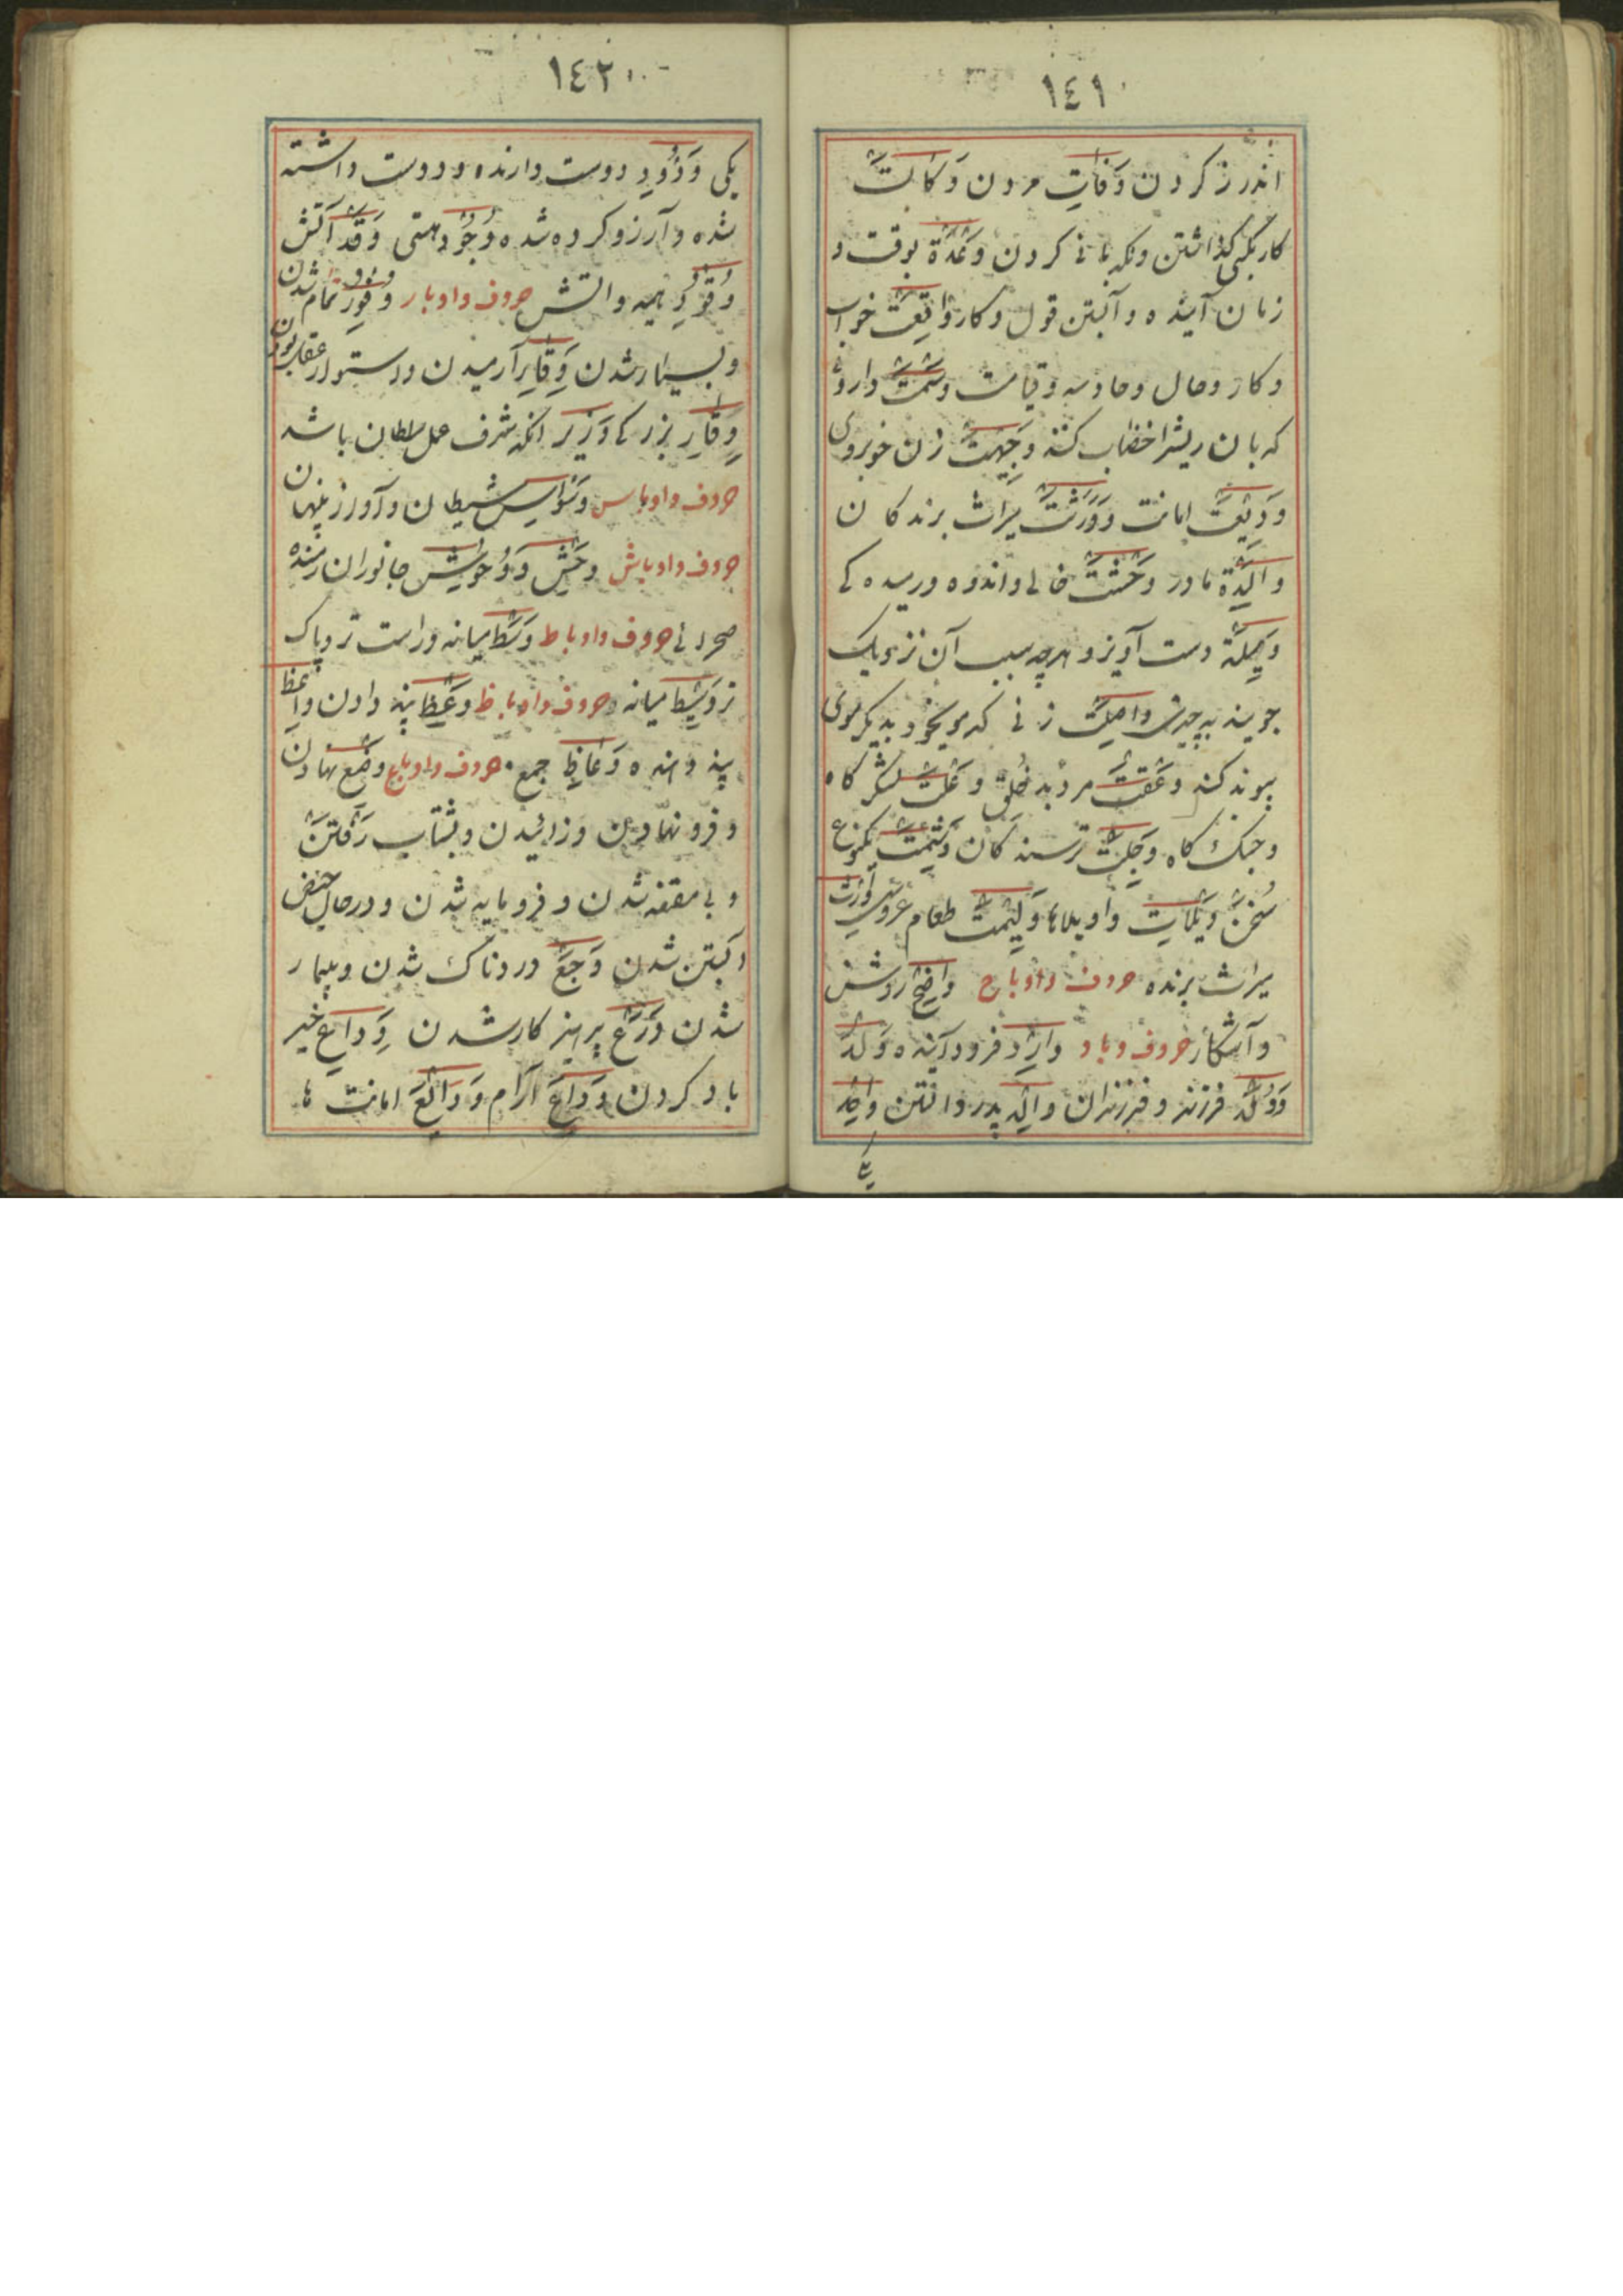 ١٤١
اندرز کردن وَفَاتِ مردن وَکَالَتْ
کار بکسی گذاشتن ونگهبانی کردن وَعْدَة بوقت و
زمان آینده و آبستن قول و کار وَاقِعَتْ خواب
و کار و حال و حادثه و قیامت وَسْمَتْ داروئ
که بان ریشرا خضاب کنند وَجِیْهَتْ زن خوبروی
وَدِیْعَتْ امانت وَوَرَثَتْ میراث برندکان
وَالِدَة مادر وَحْشَتْ خالی و اندوه و رمیده کی
وَسِیْلَة دست آویز و هرچه بسبب آن نزدیک
جویند به چیزی وَاصِلَتْ زنی که مو بخود بدیگر موی
پیوند کند وَعْقَتْ مرد بد خُلق لشکر کاه
و جنک کاه وَجِلَتْ ترسندکان یکنوع
سُخَنْ وَیْلَاتِ واویلاها وَلِیْمَتْ طعام عروسی وَارِثْ
میراث برنده حروف واو باح وَاضِحْ روشن
و آشکار حروف و باد وَارِدْ فرود آینده وَلَدْ
وَوُلْدْ فرزند و فرزندان وَالِدْ پدر وَاحِدْ
یکی
١٤٢
یکی وَدُوْدِ دوست دارنده و دوست داشته
شده و آرزو کرده شده وُجُوْد هستی وَقْد آتش
وَقُوْدِ هیمه و اتش حروف واو بار وُفُوْرْ تمام شدن
و بسیار شدن وَقَارِ آرمیدن و استوار عقل بودن
وِقَارِ بزرکی وَزِیْر انکه شرف عمل سلطان باشد
حروف واو باس وَسْوَاسِ شیطان و آواز پنهان
حروف واو باش وَحْشِ وَوُحُوْشِ جانوران رمنده
صحرائی حروف واو باط وَسَطْ میانه و راست تر و پاک
تر وَسِیْطْ میانه حروف واو باظ وَعْظْ پند دادن وَاعِظْ
پند دهنده وَعَّاظِ جمع حروف واو باع وَضْع نهادن
و فرو نهادن و زائیدن و بشتاب رَفْتَنْ
و بی مقنعه شدن و فرومایه شدن و در حال حیض
آبستن شدن وَجَعْ دردناک شدن و بیمار
شدن وَرَعْ پرهیز کار شدن وِدَاعِ خیر
باد کردن وَدَاعَ آرام وَدَائِعْ امانت ها